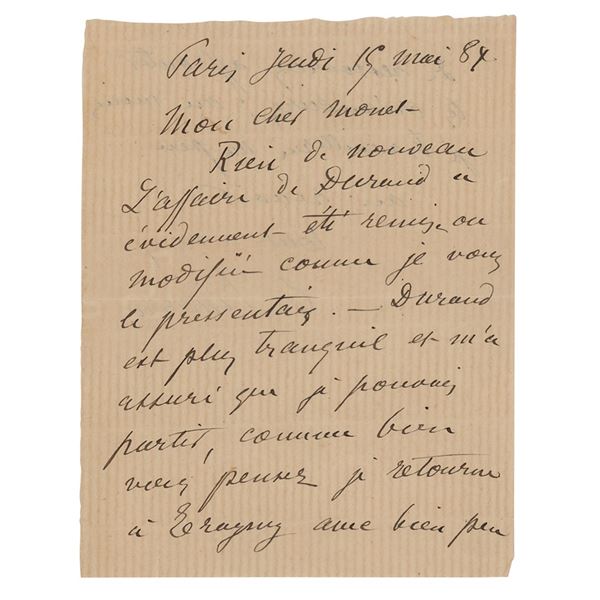 Paris Jeudi 15 mai 84
Mon cher Monet
Rien de nouveau
L'affaire de Durand a
évidement été remise ou
modifié comme je vous
le pressentais. — Durand
est plus tranquil et m'a
assuré que je pouvais
partir, comme bien
vous pensez je retourne
à Eragny avec bien peu